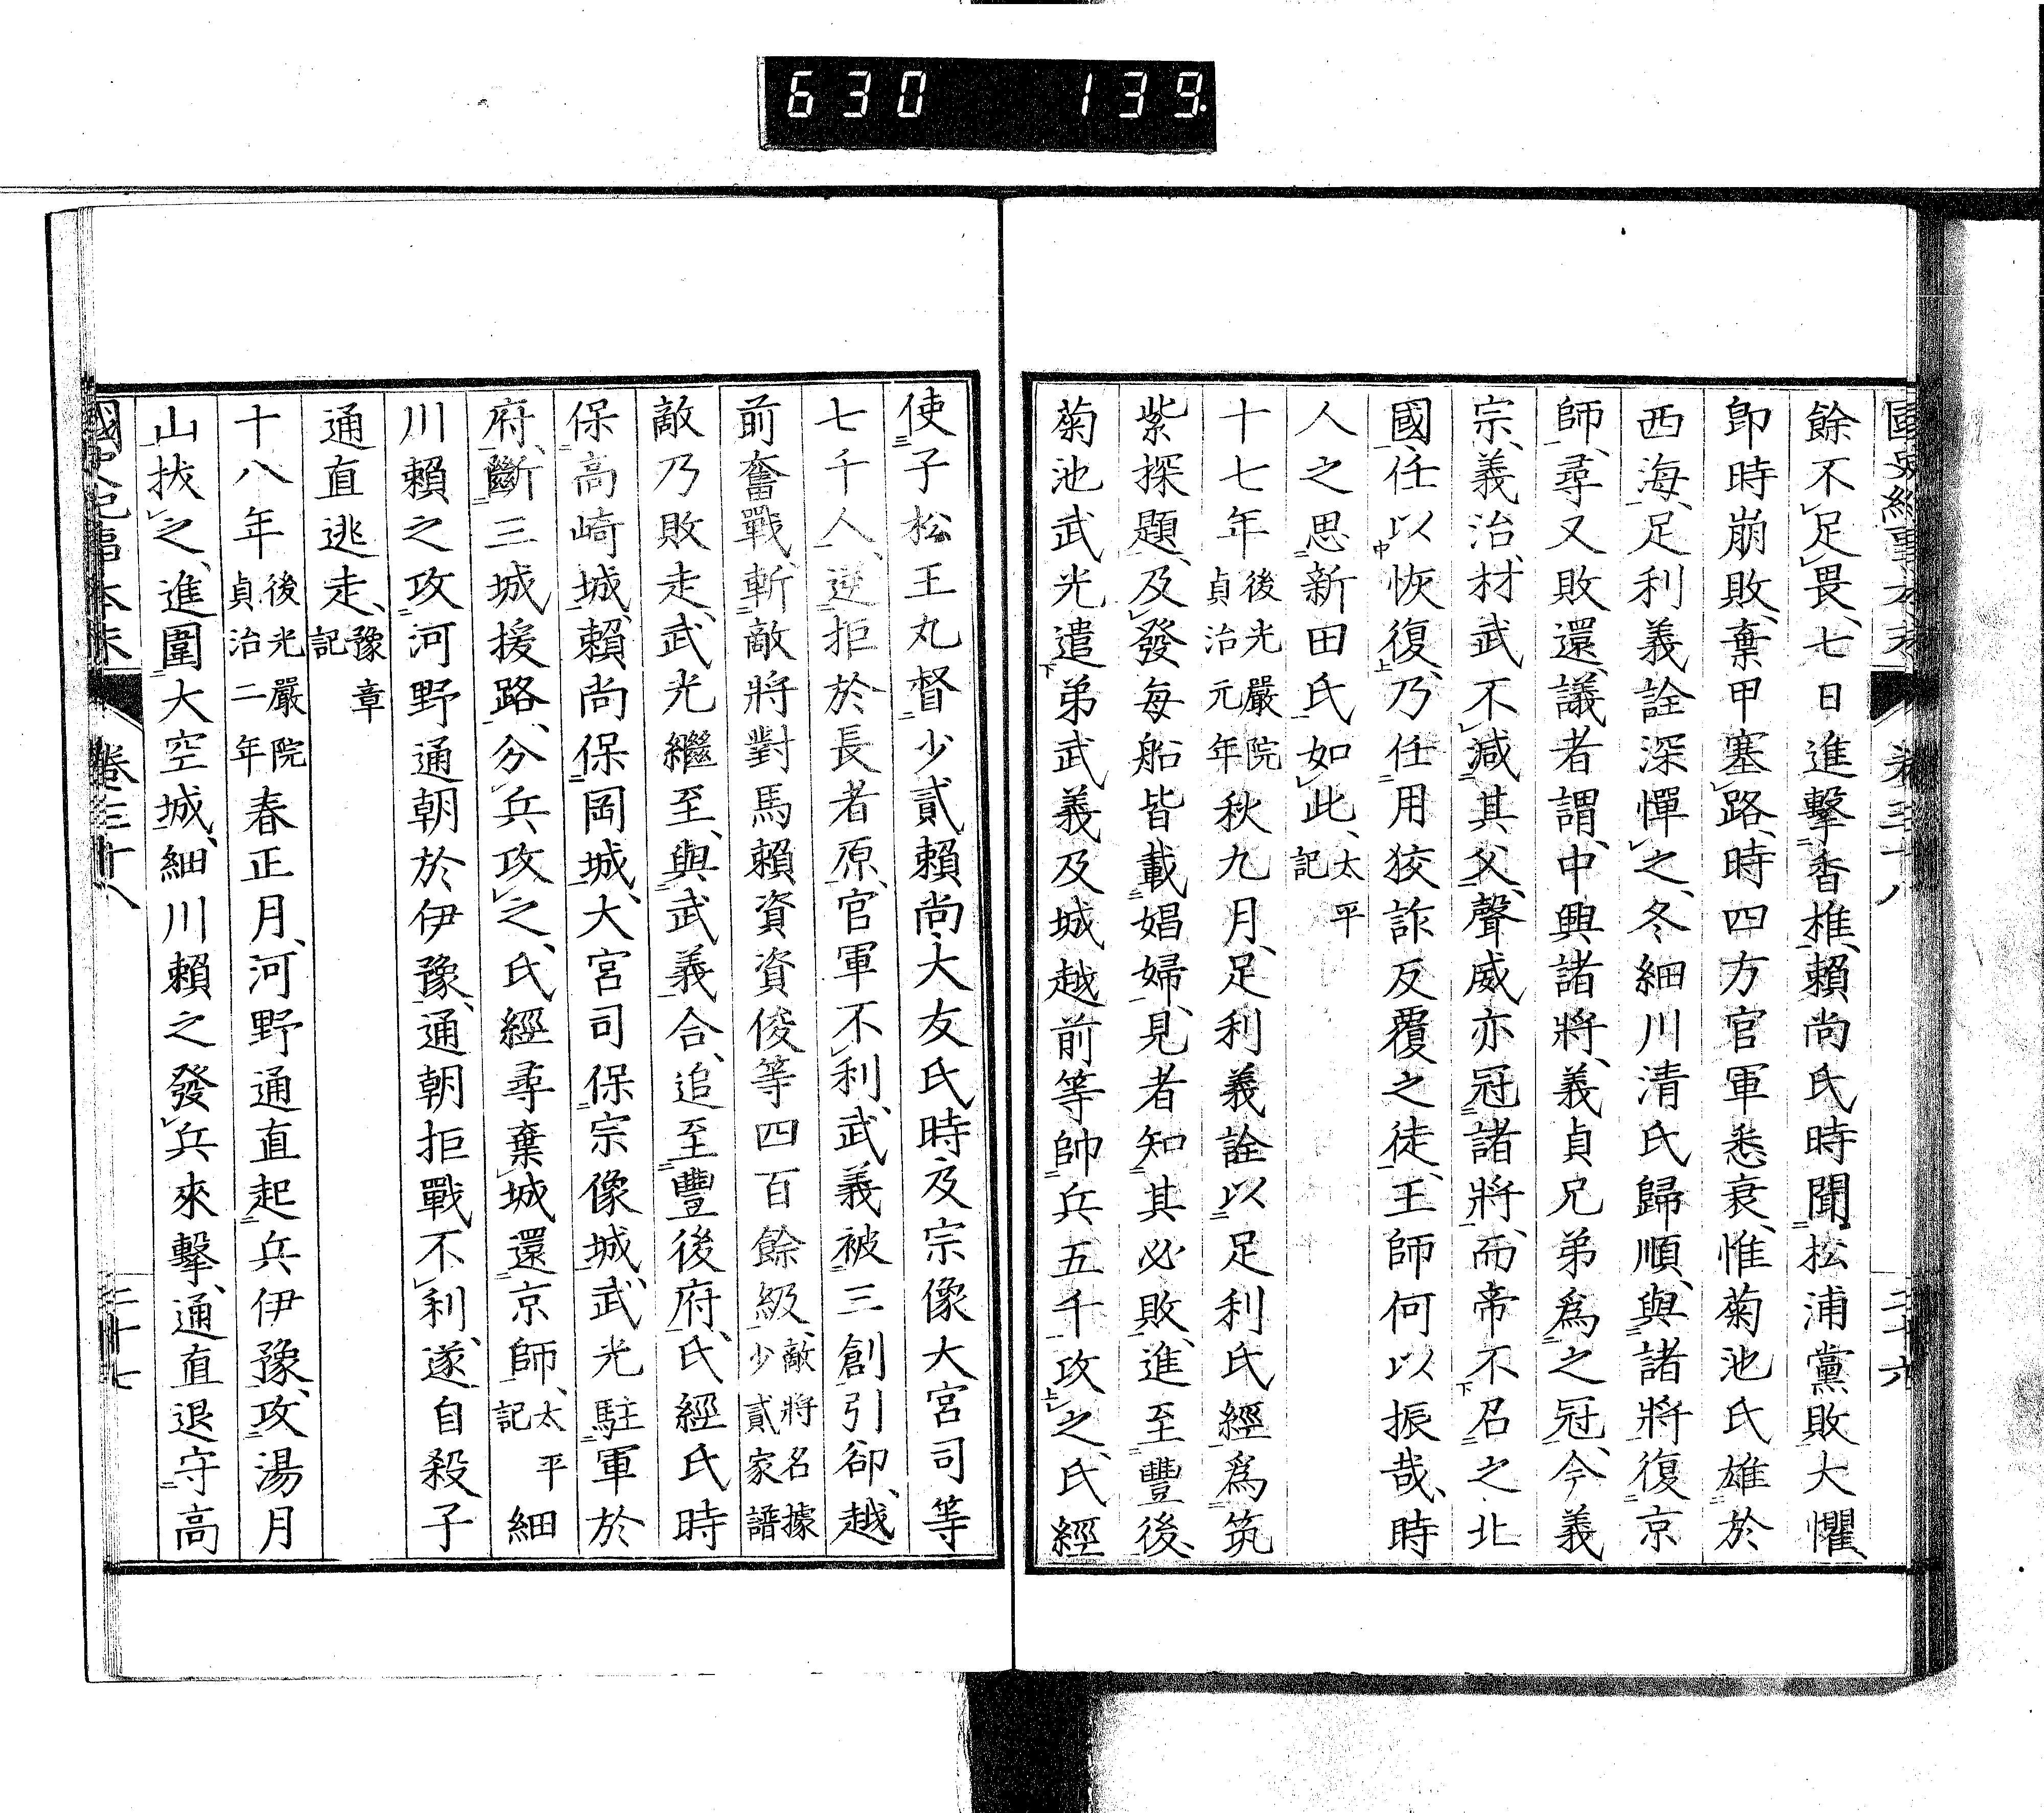 630 139
國史紀事本末 卷三十八 二十六
餘不足畏、七日進擊香椎、賴尚氏時聞松浦黨敗大懼、
卽時崩敗、棄甲塞路、時四方官軍悉衰、惟菊池氏雄於
西海、足利義詮深憚之、冬細川清氏歸順、與諸將復京
師、尋又敗還、議者謂、中興諸將、義貞兄弟爲之冠、今義
宗、義治、材武不減其父、聲威亦冠諸將、而帝不召之北
國、任以恢復、乃任用狡詐反覆之徒、王師何以振哉、時
人之思新田氏如此、太平記
十七年後光嚴院貞治元年秋九月、足利義詮以足利氏經爲筑
紫探題、及發每船皆載娼婦、見者知其必敗、進至豐後、
菊池武光遣弟武義及城越前等帥兵五千攻之、氏經
使子松王丸督少貳賴尚大友氏時及宗像大宮司等
七千人、逆拒於長者原、官軍不利、武義被三創引卻、越
前奮戰、斬敵將對馬賴資資俊等四百餘級、敵將名據少貳家譜
敵乃敗走、武光繼至、與武義合、追至豐後府、氏經氏時
保高崎城、賴尚保岡城、大宮司保宗像城、武光駐軍於
府、斷三城援路、分兵攻之、氏經尋棄城還京師、太平記細
川賴之攻河野通朝於伊豫、通朝拒戰不利、遂自殺子
通直逃走、豫章記
十八年後光嚴院貞治二年春正月、河野通直起兵伊豫、攻湯月
山拔之、進圍大空城、細川賴之發兵來擊、通直退守高
國史紀事本末 卷三十八 二十七